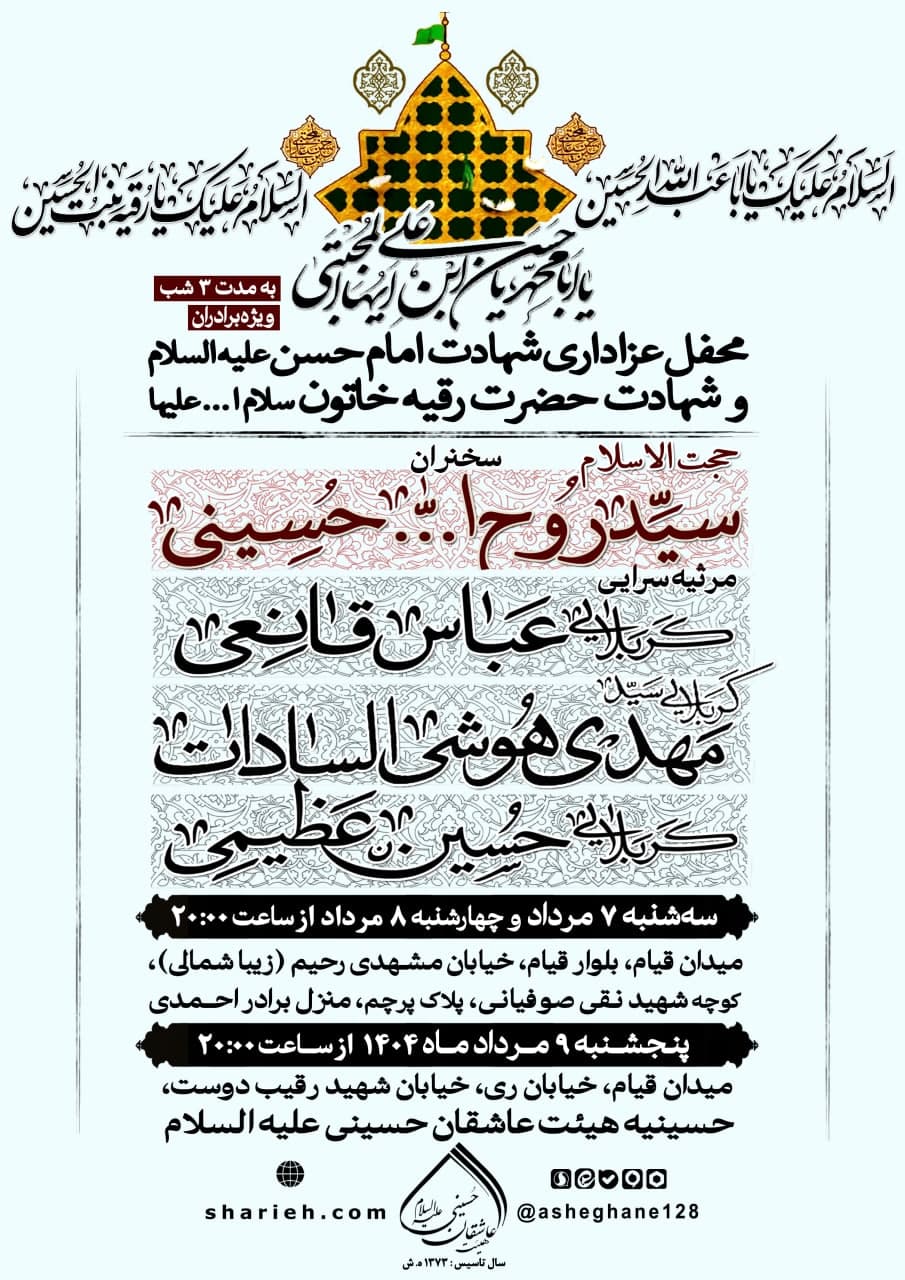 السلام علیک یا اباعبدالله الحسین
السلام علیک یا رقیه بنت الحسین
یا ابا محمد یا حسن ابن علی ایها المجتبی
به مدت ۳ شب
ویژه برادران
محفل عزاداری شهادت امام حسن علیه السلام
و شهادت حضرت رقیه خاتون سلام ا... علیها
سخنران
حجت الاسلام
سیّد رُوح ا... حُسِینی
مرثیه سرایی
کربلایی عَبّاس قانِعی
کربلایی سیّد
مَهدی هُوشی السادات
کربلایی حُسِین عَظیمی
سه‌شنبه ۷ مرداد و چهارشنبه ۸ مرداد از ساعت ۲۰:۰۰
میدان قیام، بلوار قیام، خیابان مشهدی رحیم (زیبا شمالی)،
کوچه شهید نقی صوفیانی، پلاک پرچم، منزل برادر احمدی
پنجشنبه ۹ مرداد ماه ۱۴۰۴ از ساعت ۲۰:۰۰
میدان قیام، خیابان ری، خیابان شهید رقیب دوست،
حسینیه هیئت عاشقان حسینی علیه السلام
sharieh.com
هیئت عاشقان حسینی علیه السلام
@asheghane128
سال تاسیس: ۱۳۷۳ ه.ش